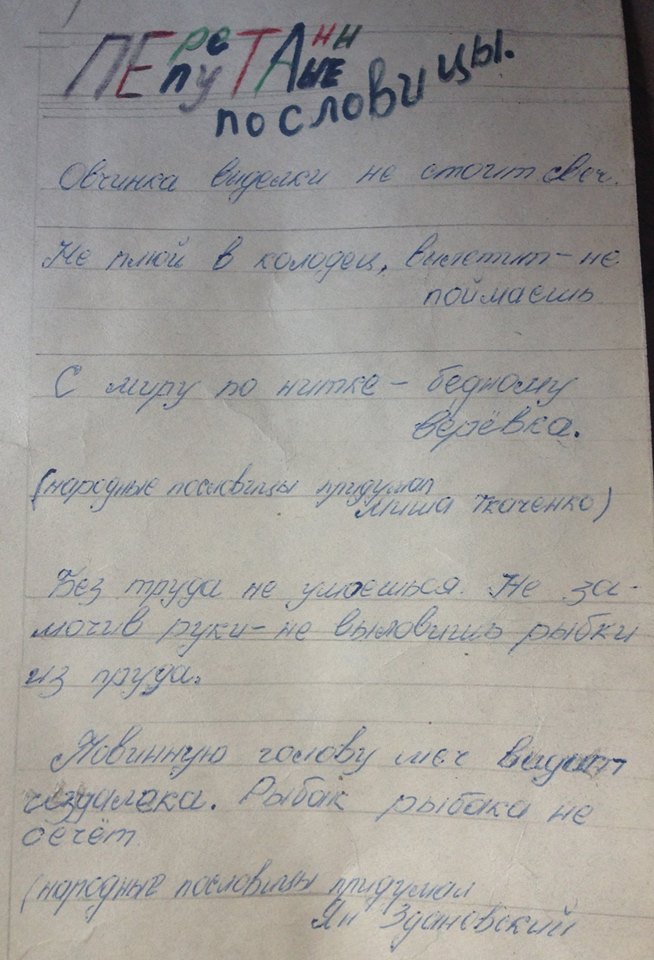 ПЕреПуТАннЫЕ
пословицы.
Овчинка выделки не стоит свеч.
Не плюй в колодец, вылетит - не
поймаешь
С миру по нитке - бедному
верёвка.
(народные пословицы придумал
Миша Ткаченко)
Без труда не умоешься. Не за-
мочив руки - не выловишь рыбки
из пруда.
Повинную голову меч видит
издалека. Рыбак рыбака не
сечёт
(народные пословицы придумал
Ян Здановский